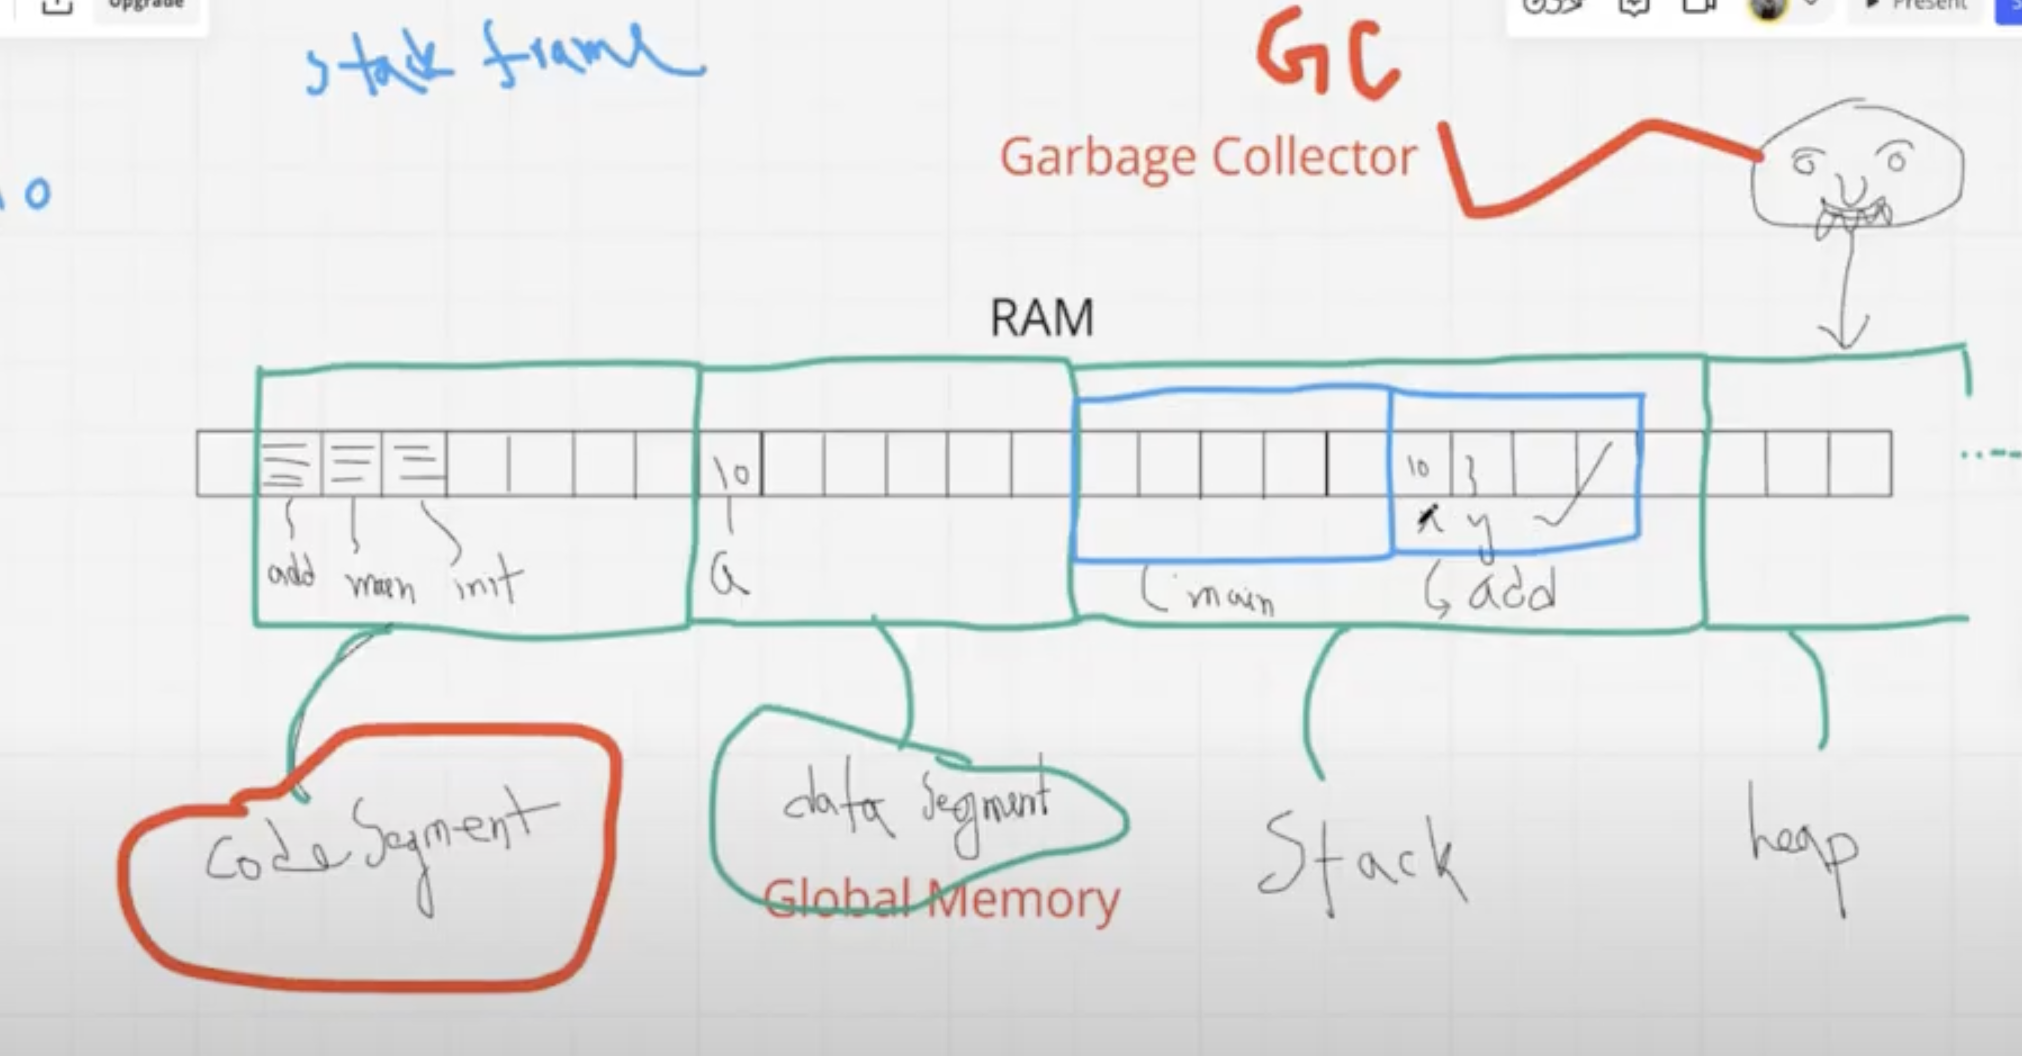 Upgrade
Present
stack frame
GC
Garbage Collector
RAM
10
10
a
x y
add main init
a
main
add
Code Segment
data segment
Global Memory
Stack
heap